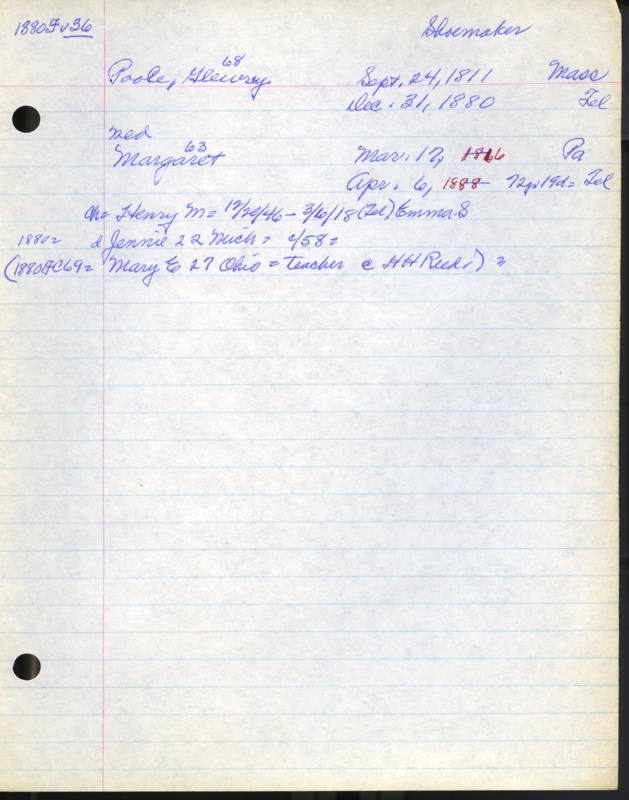 1880Fv36 Shoemaker
68
Poole, Henry Sept. 24, 1811 Mass
Dec. 31, 1880 Fel
wed
63
Margaret Mar. 17, 1816 Pa
Apr. 6, 1888 72y 19d = Fel
ch = Henry M = 12/20/46 - 3/6/18 (Fel) Emma S
1880 = d Jennie 22 Mich = c/58 =
(1880FC69 = Mary E 27 Ohio = teacher c HH Reed.) =